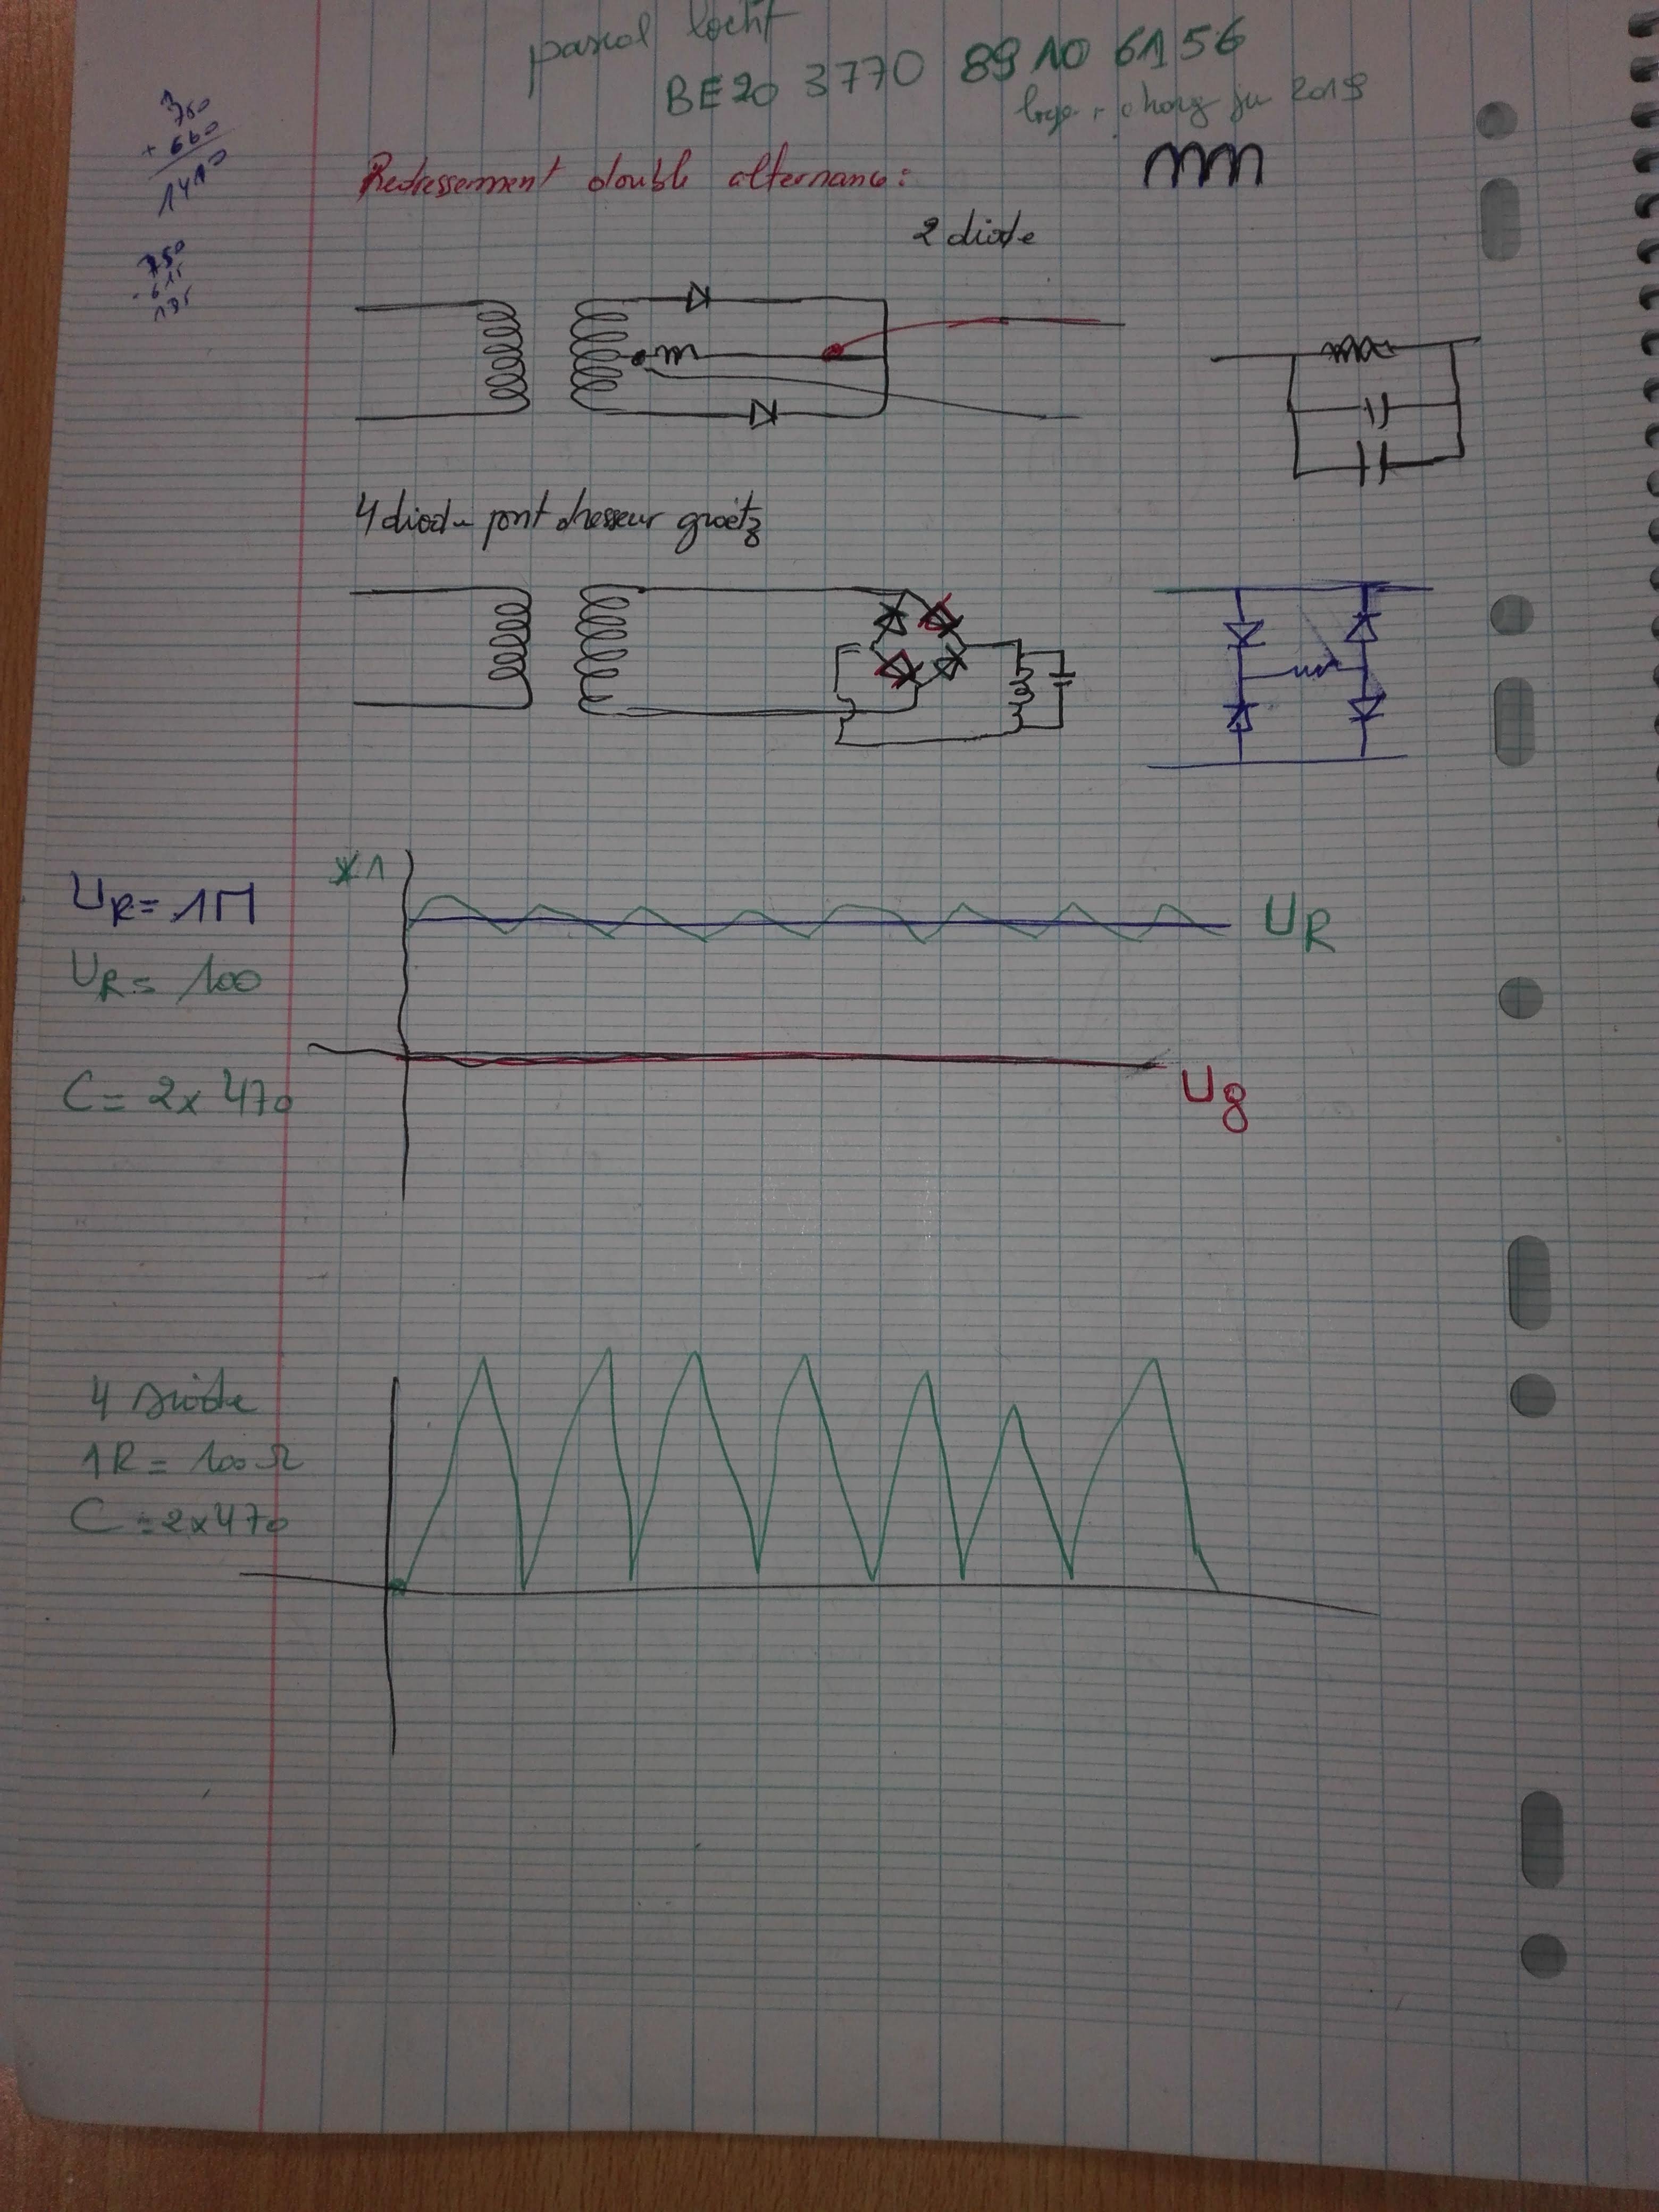 pascal locht
BE20 3770 8910 6156
2019
760
+ 660
750
Redressement double alternance:
2 diode
4 diode pont dresseur graëtz
UR= 1M
x1
UR
UR= 100
C= 2x470
Ug
4 diode
1R= 100Ω
C=2x470